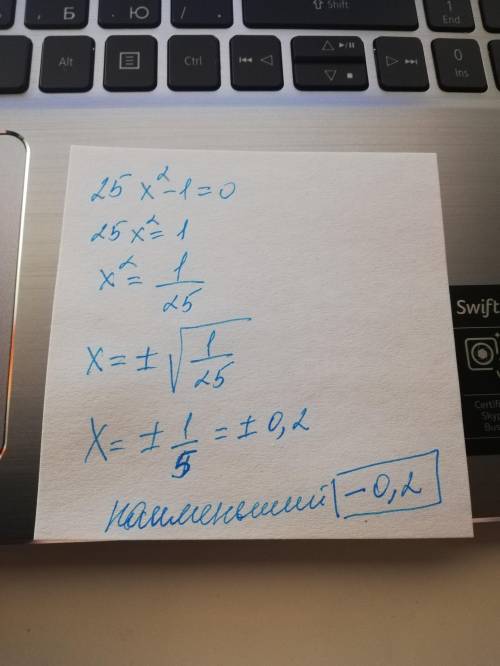 Б Ю . Shift 1 End
Alt Ctrl 0 Ins
25x²-1=0
25x²=1
x²=1/25
x=±√(1/25)
x=±1/5=±0,2
наименьший -0,2
Swift
Certif
Sky
Bus